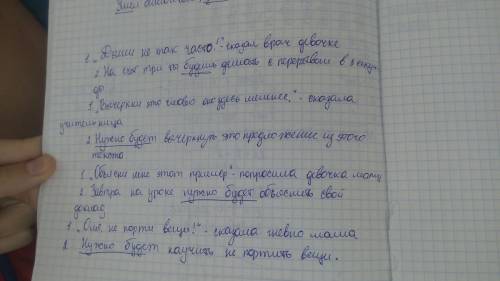 1. „Дыши не так часто!"- сказал врач девочке
2 На счёт три ты будешь дышать с перерывом в 3 секун
ды
1. „Вычеркни это слово оно здесь лишнее," - сказала
учительница
2. Нужно будет вычеркнуть это предложение из этого
текста
1. „Объясни мне этот пример"- попросила девочка маму
2. Завтра на уроке нужно будет объяснить свой
доклад
1. „Оля, не порти вещи!" - сказала гневно мама
2. Нужно будет научить не портить вещи.